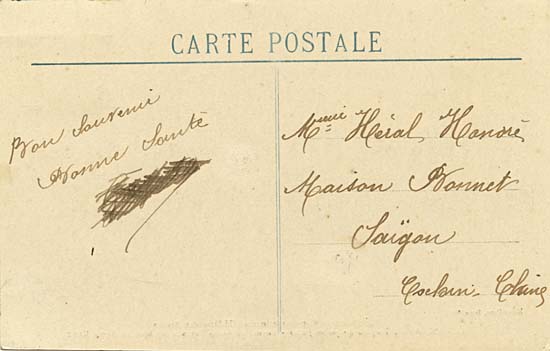 CARTE POSTALE
Bon Souvenir
Bonne Santé
Héral Honoré
Maison Bonnet
Saïgon
Cochin-Chine